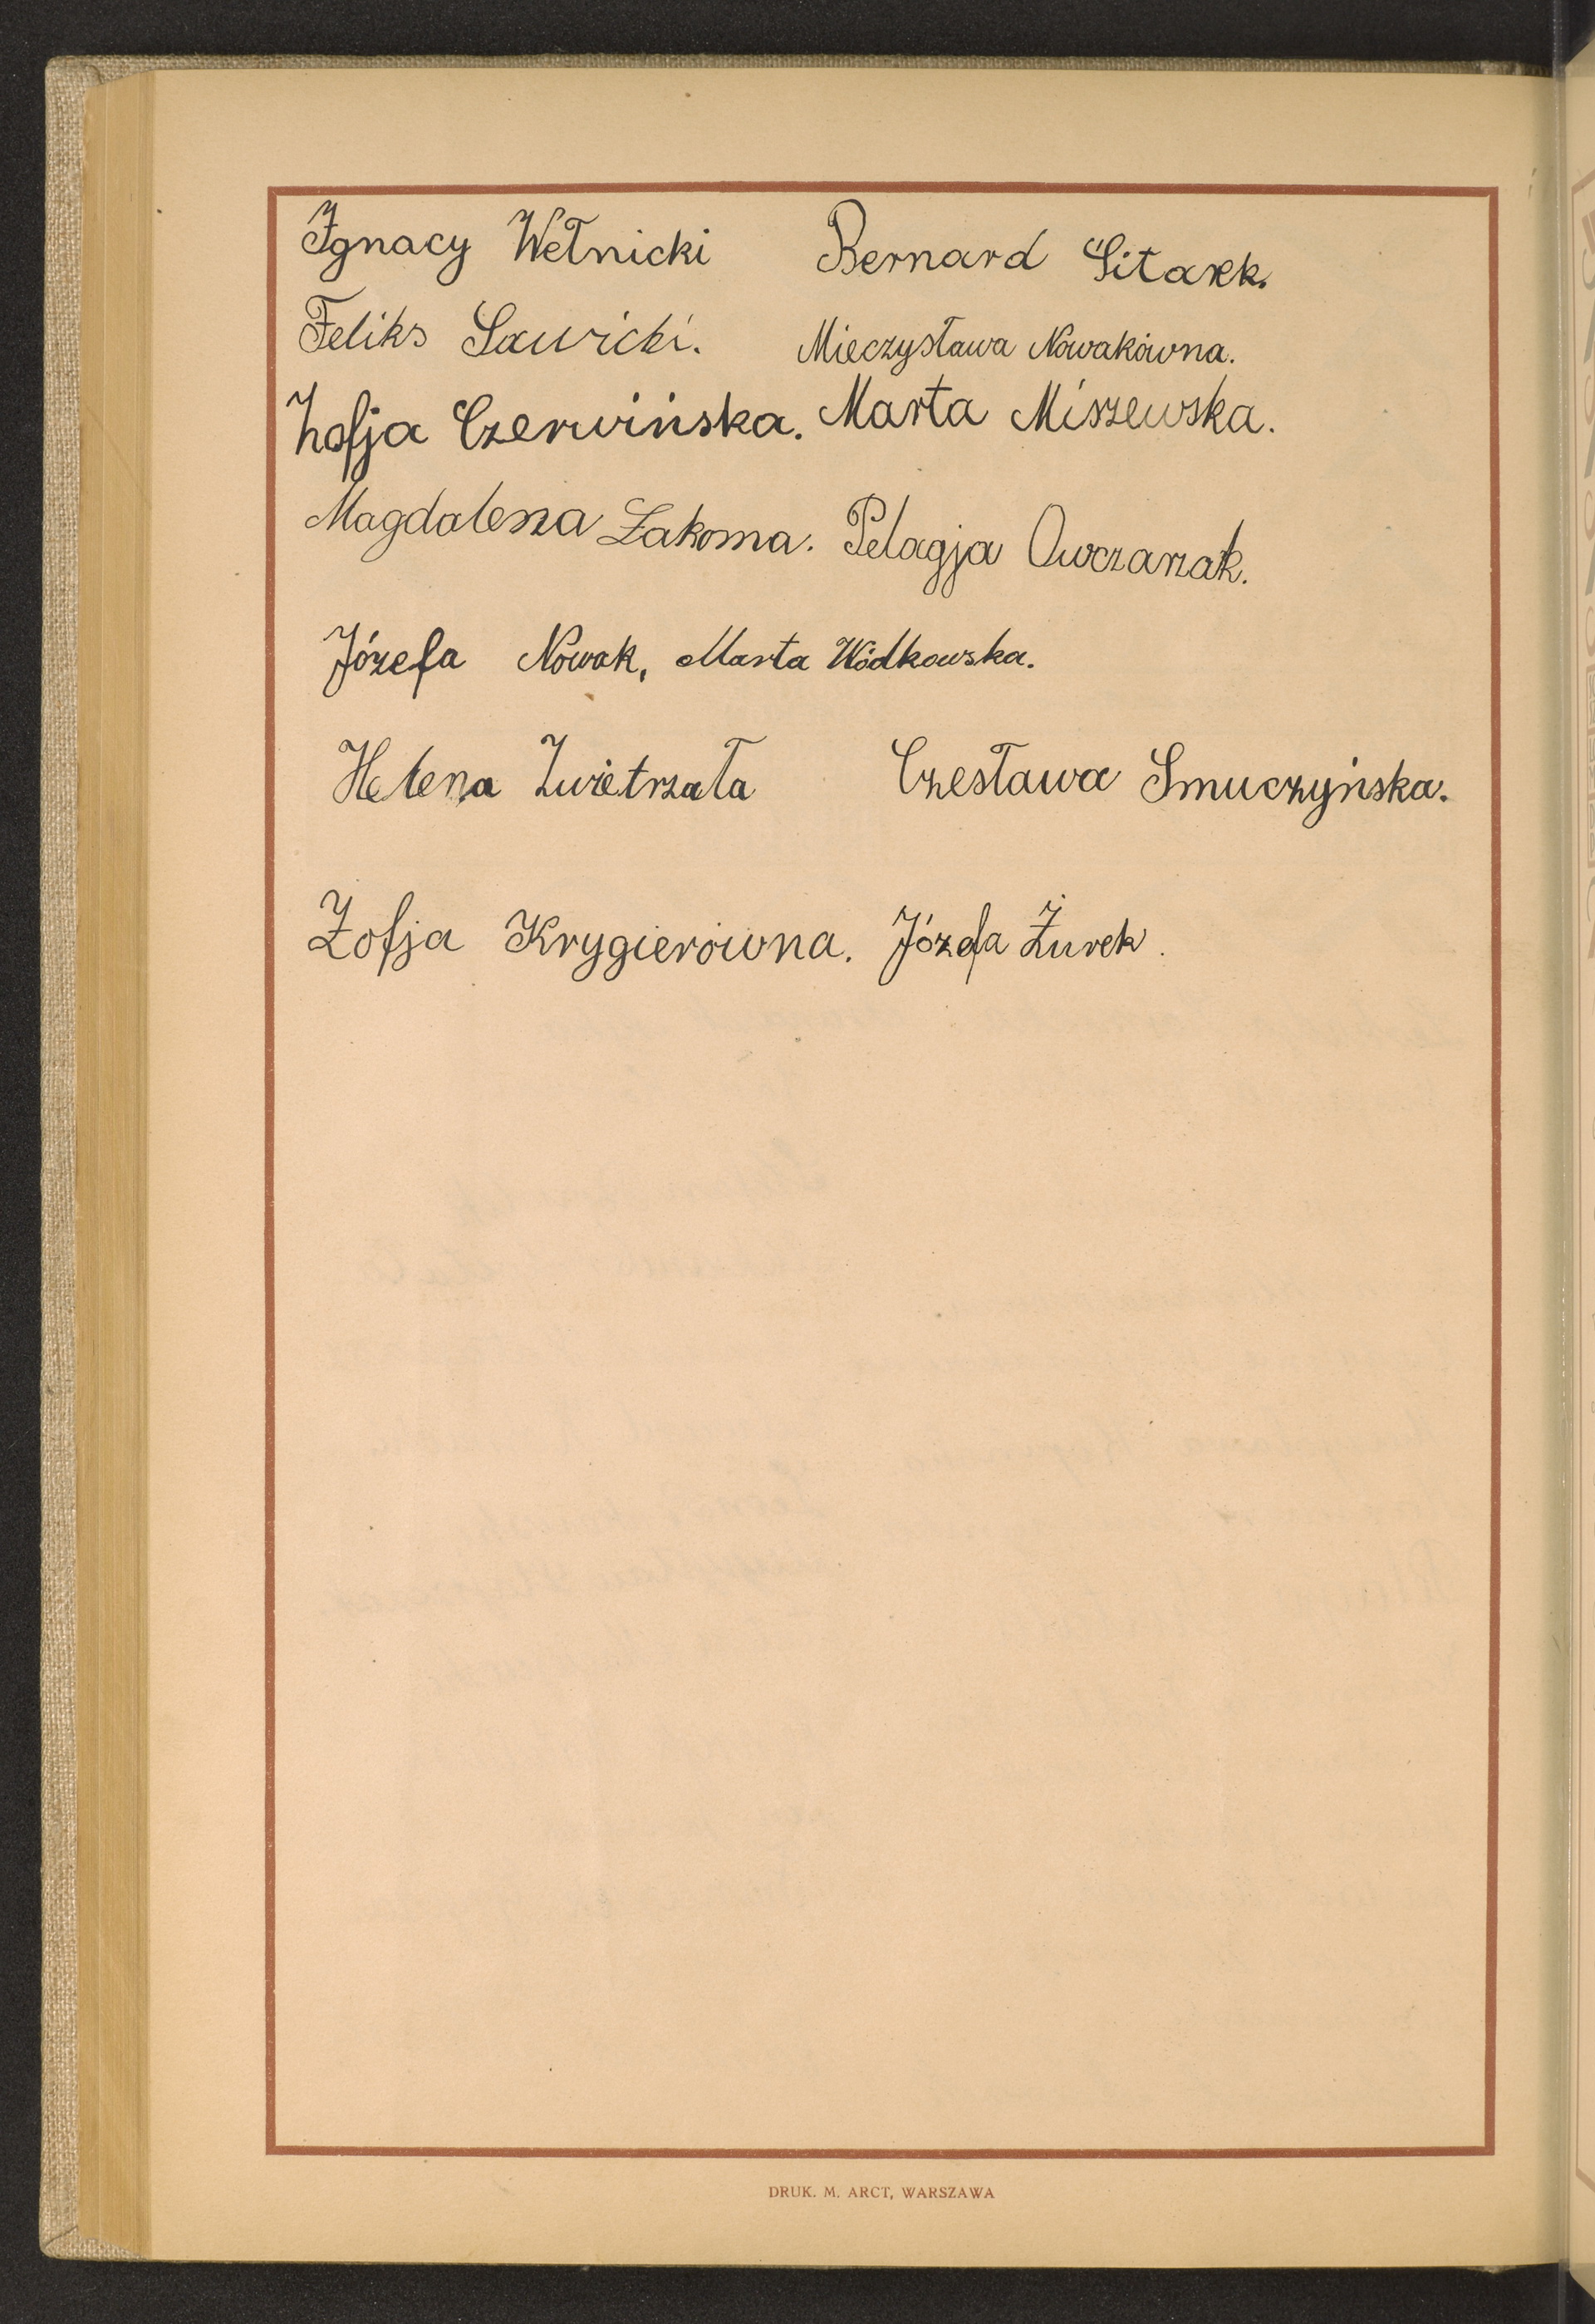 Ignacy Wełnicki Bernard Sitarek.
Feliks Sawicki. Mieczysława Nowakówna.
Zofja Czerwińska. Marta Miszewska.
Magdalena Łakoma. Pelagja Owczarzak.
Józefa Nowak, Marta Wódkowska.
Helena Zwietrzała Czesława Smuczyńska.
Zofja Krygierówna. Józefa Żurek.
DRUK. M. ARCT, WARSZAWA